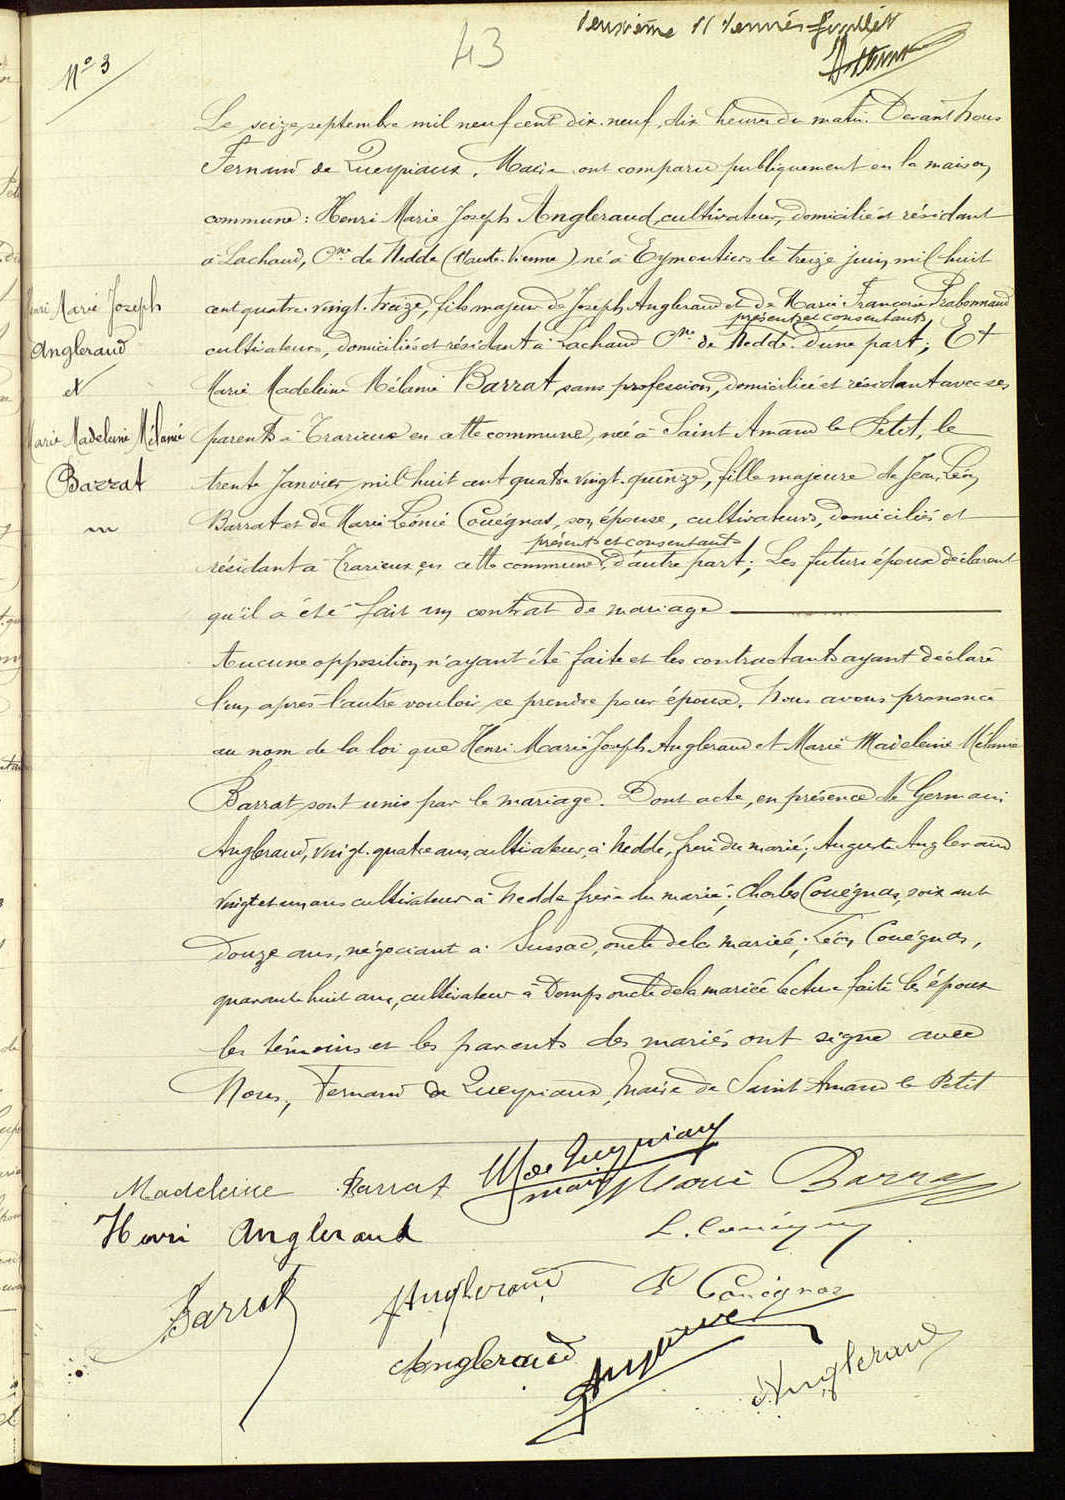 43
deuxième et dernier feuillet
N° 3
Le seize septembre mil neuf cent dix-neuf, dix heures du matin. Devant Nous
Fernand de Queyriaux, Maire ont comparu publiquement en la maison
commune : Henri Marie Joseph Angleraud cultivateur, domicilié et résidant
à Lachaud, Cne de Nedde (Haute-Vienne) né à Eymoutiers le treize juin mil huit
cent quatre-vingt-treize, fils majeur de Joseph Angleraud et de Marie Françoise Prabonnaud
présents et consentants,
cultivateurs, domiciliés et résidant à Lachaud Cne de Nedde. d'une part ; Et
Marie Madeleine Mélanie Barrat, sans profession, domiciliée et résidant avec ses
parents à Trarieux en cette commune, née à Saint Amand le Petit, le
trente Janvier mil huit cent quatre vingt-quinze, fille majeure de Jean Léon
Barrat et de Marie Léonie Couégnas, son épouse, cultivateurs, domiciliés et
présents et consentants
résidant à Trarieux en cette commune, d'autre part ; Les futurs époux déclarent
qu'il a été fait un contrat de mariage
Henri Marie Joseph
Angleraud
et
Marie Madeleine Mélanie
Barrat
Aucune opposition n'ayant été faite et les contractants ayant déclaré
l'un après l'autre vouloir se prendre pour époux, Nous avons prononcé
au nom de la loi que Henri Marie Joseph Angleraud et Marie Madeleine Mélanie
Barrat sont unis par le mariage. Dont acte, en présence de Germain
Angleraud, vingt-quatre ans, cultivateur, à Nedde, frère du marié ; Auguste Angleraud
vingt et un ans cultivateur à Nedde frère du marié ; Charles Couégnas, soixante
douze ans, négociant à Sussac, oncle de la mariée ; Léon Couégnas,
quarante huit ans, cultivateur à Domps oncle de la mariée Lecture faite les époux
les témoins et les parents des mariés ont signé avec
Nous, Fernand de Queyriaux, Maire de Saint Amand le Petit
Madeleine Barrat
de Queyriaux
maire
Barrat
Henri Angleraud
L. Couégnas
Barrat
Angleraud
Couégnas
Angleraud
Angleraud